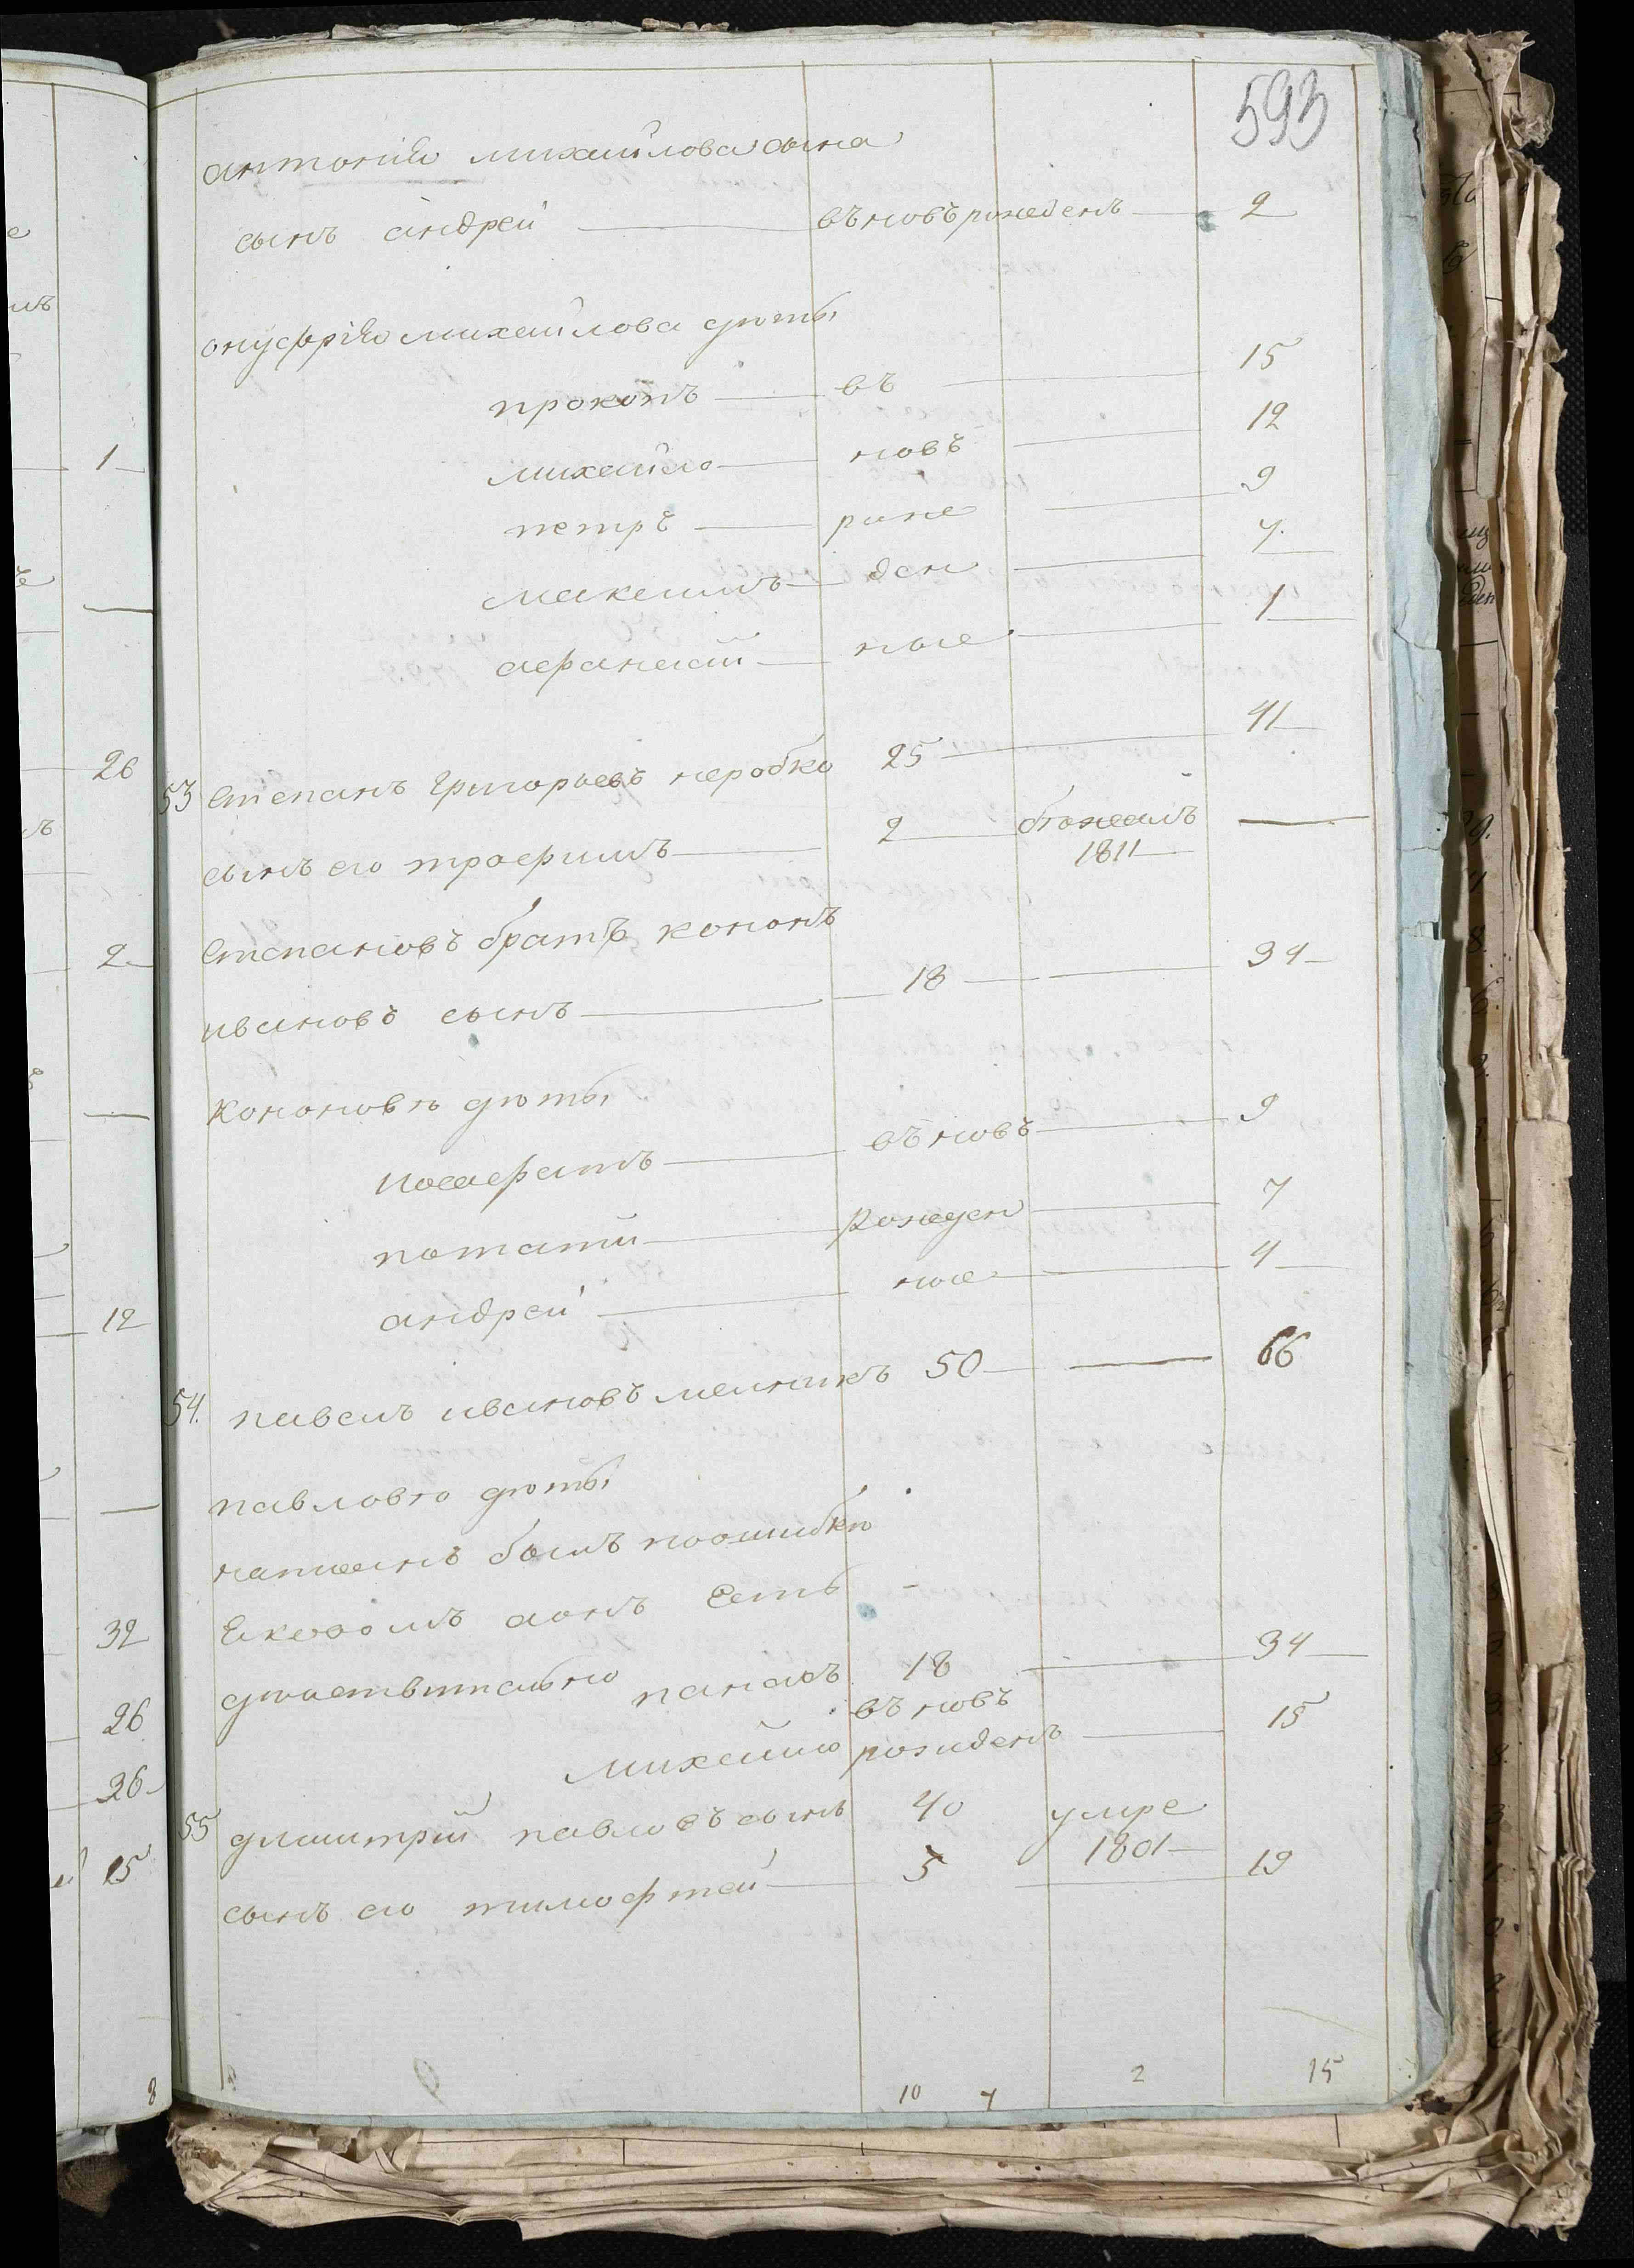 593
антонія михайлова сына
сынъ андрей въновърожденъ 2
онуфрія михайлова дѣти
прокопъ въ 15
михайло новъ 12
петръ роже 9
максимъ ден 4
афанасій ные 1
53 степанъ григорьевъ неробко 25 41
сынъ его трофимъ 2 бѣжалъ 1811 —
степановъ братъ кононъ
ивановъ сынъ 18 34
кононовы дѣти
иосафатъ въновъ 9
потапій рожден 7
андрей ные 4
54. павелъ ивановъ мелникъ 50 66
павловы дѣти
написанъ былъ поошибкѣ
аонъ есть
дѣйствительно панасъ 18 34
въновъ
михайло рожденъ 15
55 дмитрій павловъ сынъ 40 умре
1801
сынъ его тимофѣй 3 19
10 7 2 15
1
26
2
12
32
26
36
15
8